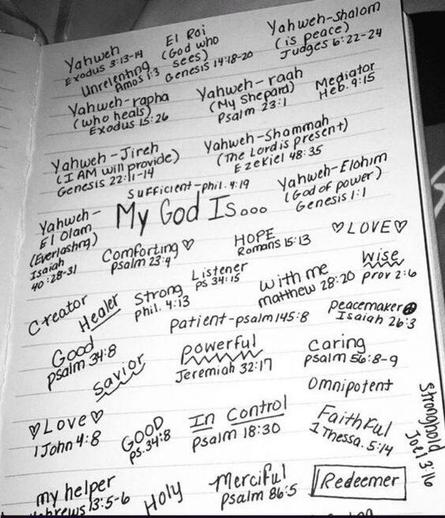 Yahweh
Exodus 3:13-14
Unrelenting
Amos 1:3
El Roi
(God who
sees)
Genesis 14:18-20
Yahweh-Shalom
(is peace)
Judges 6:22-24
Yahweh-rapha
(who heals)
Exodus 15:26
Yahweh-raah
(My Shepard)
Psalm 23:1
Mediator
Heb. 9:15
Yahweh-Jireh
(I AM will provide)
Genesis 22:11-14
Yahweh-Shammah
(The Lord is present)
Ezekiel 48:35
Sufficient-phil. 4:19
Yahweh-
El Olam
(Everlasting)
Isaiah
40:28-31
My God Is...
Yahweh-Elohim
(God of power)
Genesis 1:1
Comforting♡
psalm 23:4
HOPE
Romans 15:13
♡LOVE♡
Creator
Healer
Strong
Phil. 4:13
Listener
ps 34:15
with me
matthew 28:20
Wise
prov 2:6
patient-psalm 145:8
peacemaker
Isaiah 26:3
Good
psalm 34:8
Savior
powerful
Jeremiah 32:17
caring
psalm 56:8-9
omnipotent
♡Love♡
1 John 4:8
GOOD
ps. 34:8
In Control
psalm 18:30
Faithful
1 Thessa. 5:14
Stronghold
Joel 3:16
my helper
Hebrews 13:5-6
Holy
Merciful
psalm 86:5
Redeemer